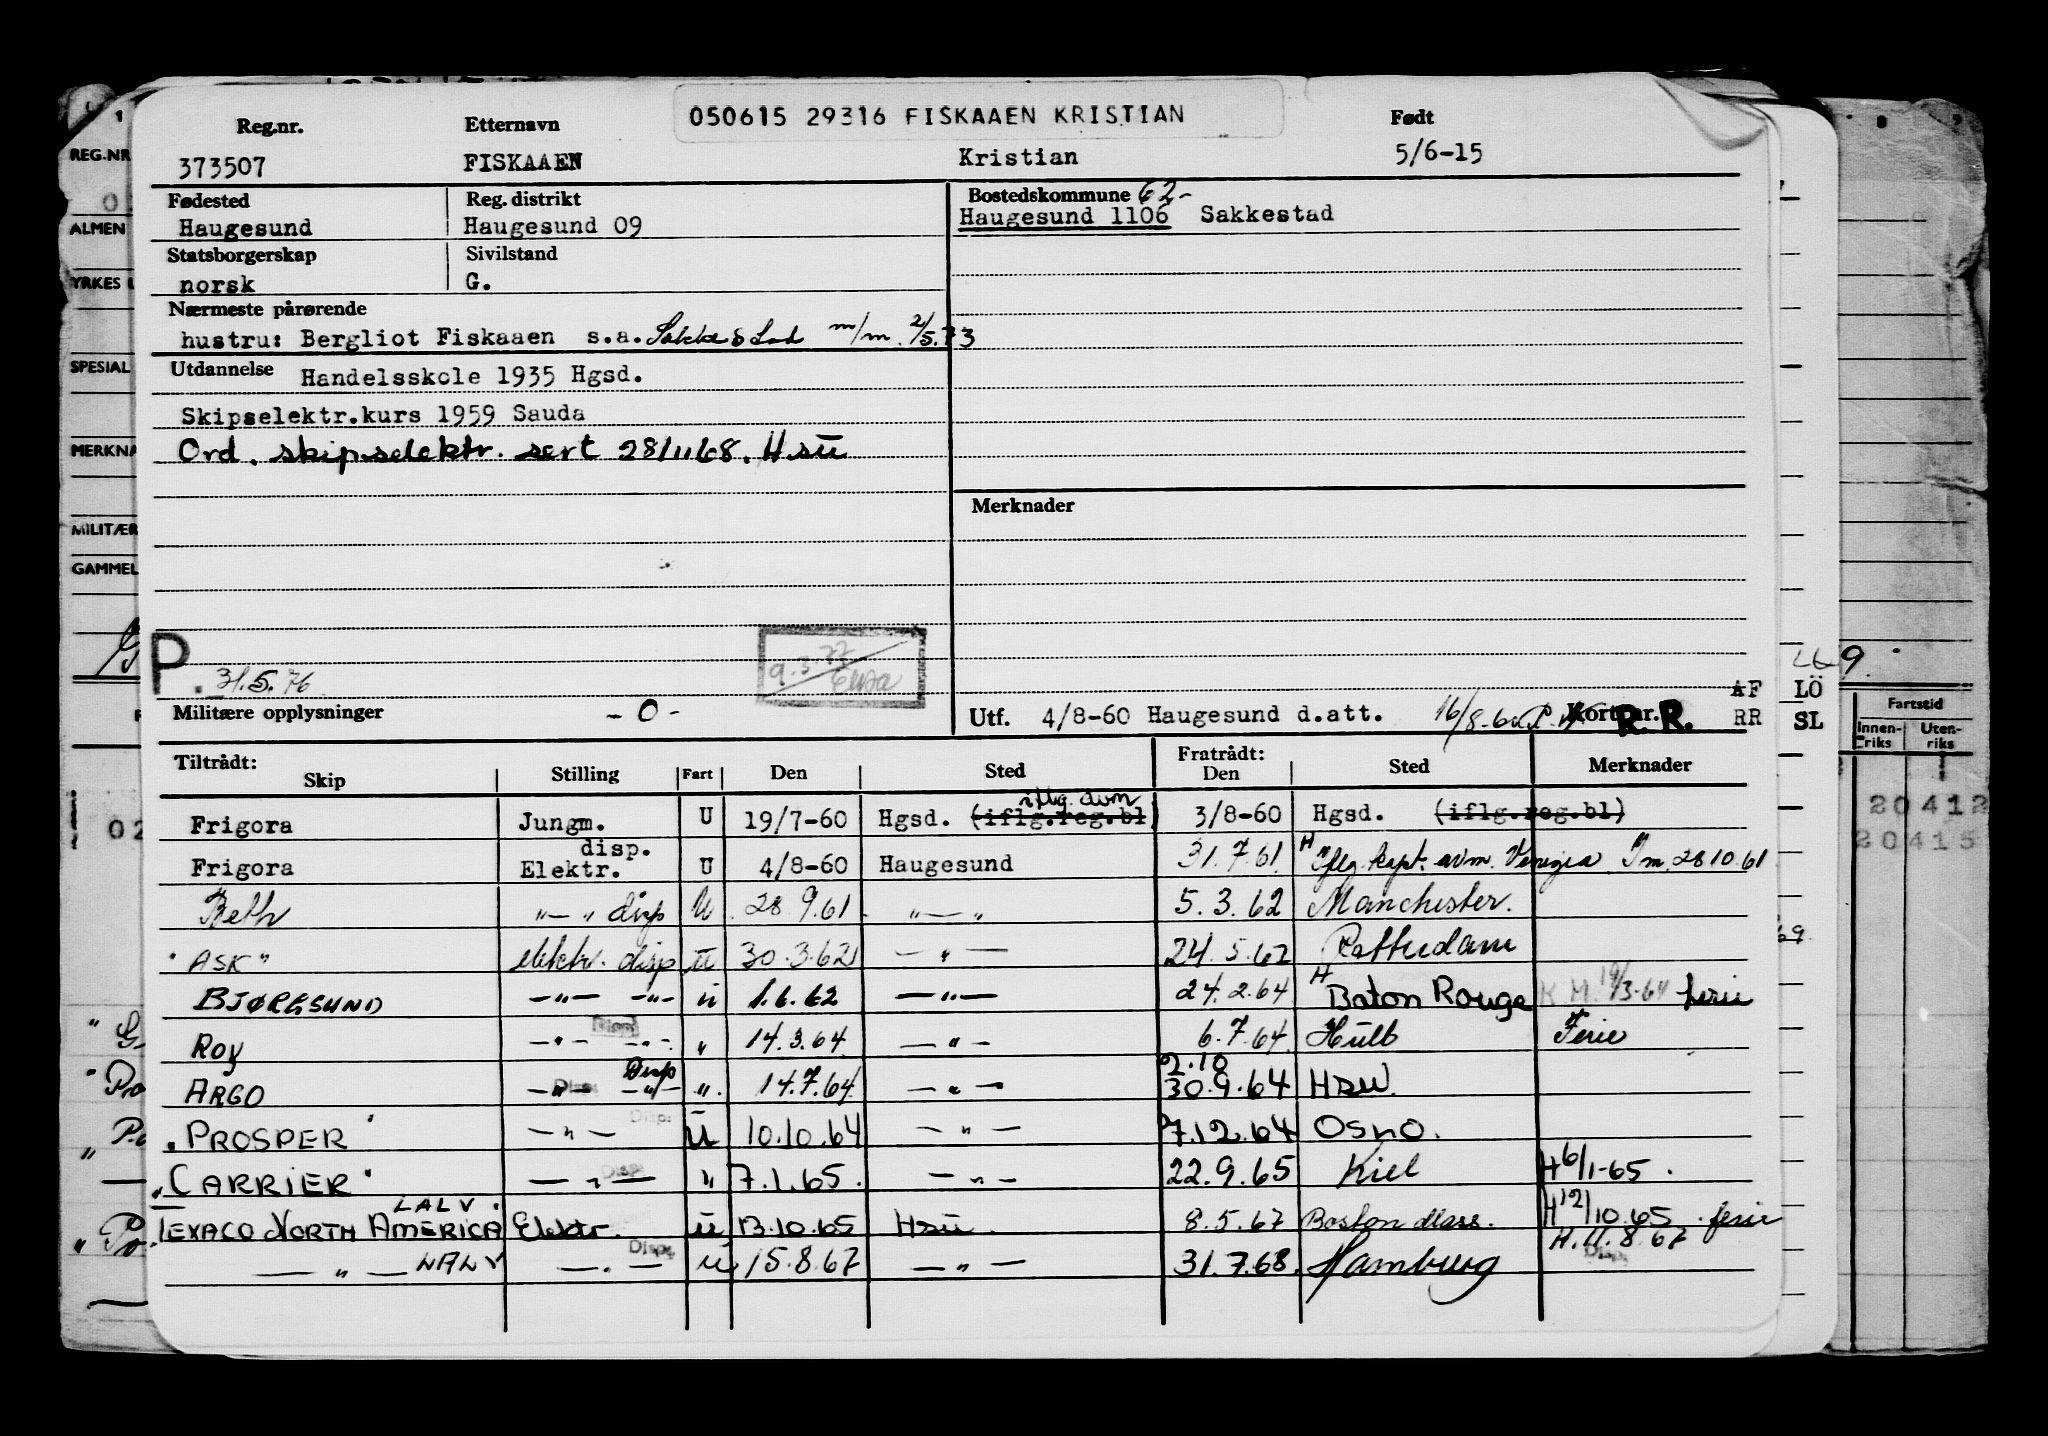 050615 29316 FISKAAEN KRISTIAN
Reg.nr. Etternavn Født
373507 FISKAAEN Kristian 5/6-15
Fødested Reg. distrikt Bostedskommune 62-
Haugesund Haugesund 09 Haugesund 1106 Sakkestad
Statsborgerskap Sivilstand
norsk G.
Nærmeste pårørende
hustru: Bergliot Fiskaaen s.a. m/m. 2/5.73
Utdannelse Handelsskole 1935 Hgsd.
Skipselektr.kurs 1959 Sauda
Ord. skipselektr. sert 28/11 68. Hsü
Merknader
P. 31.5.76
9.3.77
Militære opplysninger -0- Utf. 4/8-60 Haugesund d.att. Kort nr. R.R.
AF LÖ
RR SL
Tiltrådt: Fratrådt:
Skip Stilling Fart Den Sted Den Sted Merknader
Frigora Jungm. U 19/7-60 Hgsd. (iflg.reg.bl) iflg. avm 3/8-60 Hgsd. (iflg.reg.bl)
Frigora disp. Elektr. U 4/8-60 Haugesund 31.7.61 H Iflg. kapt. avm. Venezia Im. 28 10 61
Beth -"- " disp U 28.9.61 -"- 5.3.62 Manchester.
"ASK" elektr. disp ü 30.3.62 -"- 24.5.62 Rotterdam
BJØRGSUND -"- -"- ü 1.6.62 -"- 24.2.64 H Baton Rouge K.M. 19/3-64 ferie
Roy -"- -"- " 14.3.64 -"- 6.7.64 Hull Ferie
ARGO -"- -"- Disp " 14.7.64 -"- 2.10 30.9.64 Hsü.
"PROSPER" -"- Disp. ü 10.10.64 -"- 7.12.64 OSLO.
"CARRIER" -"- Disp. " 7.1.65. -"- 22.9.65 Kiel H 6/1-65.
TEXACO NORTH AMERICA LALV. Elektr. ü 13.10.65 Hsü. 8.5.67 Boston Mass. H 12/10.65. ferie
-"- LALV -"- Disp. ü 15.8.67 -"- 31.7.68. Hamburg H.11.8.67 Disp.
REG.NR
ALMEN
YRKES
SPESIAL
MERKNA
MILITÆR
GAMMEL
Fartstid
Innen-riks Uten-riks
20412
20415